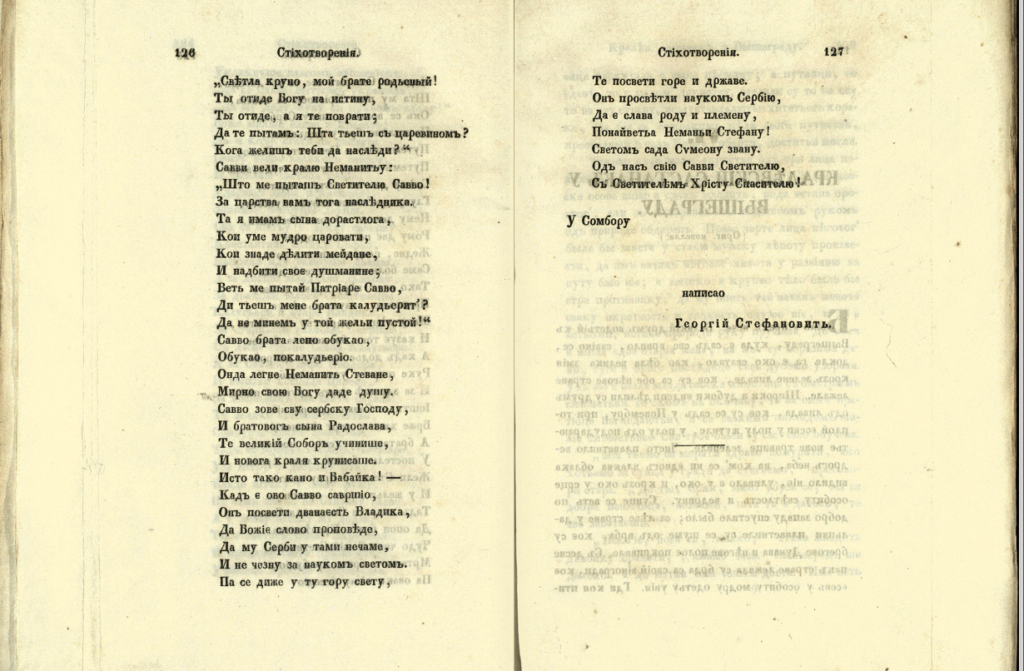 126 Стіхотворенія.
„Свѣтла круно, мой брате родьеный!
Ты отиде Богу на истину,
Ты отиде, а я те поврати;
Да те пытамъ: Шта тьешъ съ царевиномъ?
Кога желишъ теби да наслѣди?“
Савви вели кралю Неманитьу:
„Што ме пыташъ Светителю Савво!
За царства вамъ тога наслѣдника.
Та я имамъ сына дорастлога,
Кои уме мудро царовати,
Кои знаде дѣлити мейдане,
И надбити своє душманине;
Веть ме пытай Патріаре Савво,
Ди тьешъ мене брата калудьерит’?
Да не минемъ у той жельи пустой!“
Савво брата лепо обукао,
Обукао, покалудьеріо.
Онда легне Неманить Стеване,
Мирно свою Богу даде душу.
Савво зове сву сербску Господу,
И братовогъ сына Радослава,
Те великій Соборъ учинише,
И новога краля крунисаше.
Исто тако кано и Бабайка! —
Кадъ є ово Савво савршіо,
Онъ посвети дванаєсть Владика,
Да Божіє слово проповѣде,
Да му Серби у тами нечаме,
И не чезну за наукомъ светомъ.
Па се диже у ту гору свету,
Стіхотворенія. 127
Те посвети горе и државе.
Онъ просвѣтли наукомъ Сербію,
Да є слава роду и племену,
Понайветьа Неманьи Стефану!
Светомъ сада Сѵмеону звану.
Одъ насъ свію Савви Светителю,
Съ Светителѣмъ Хрісту Спасителю!
У Сомбору
написао
Георгій Стефановить.